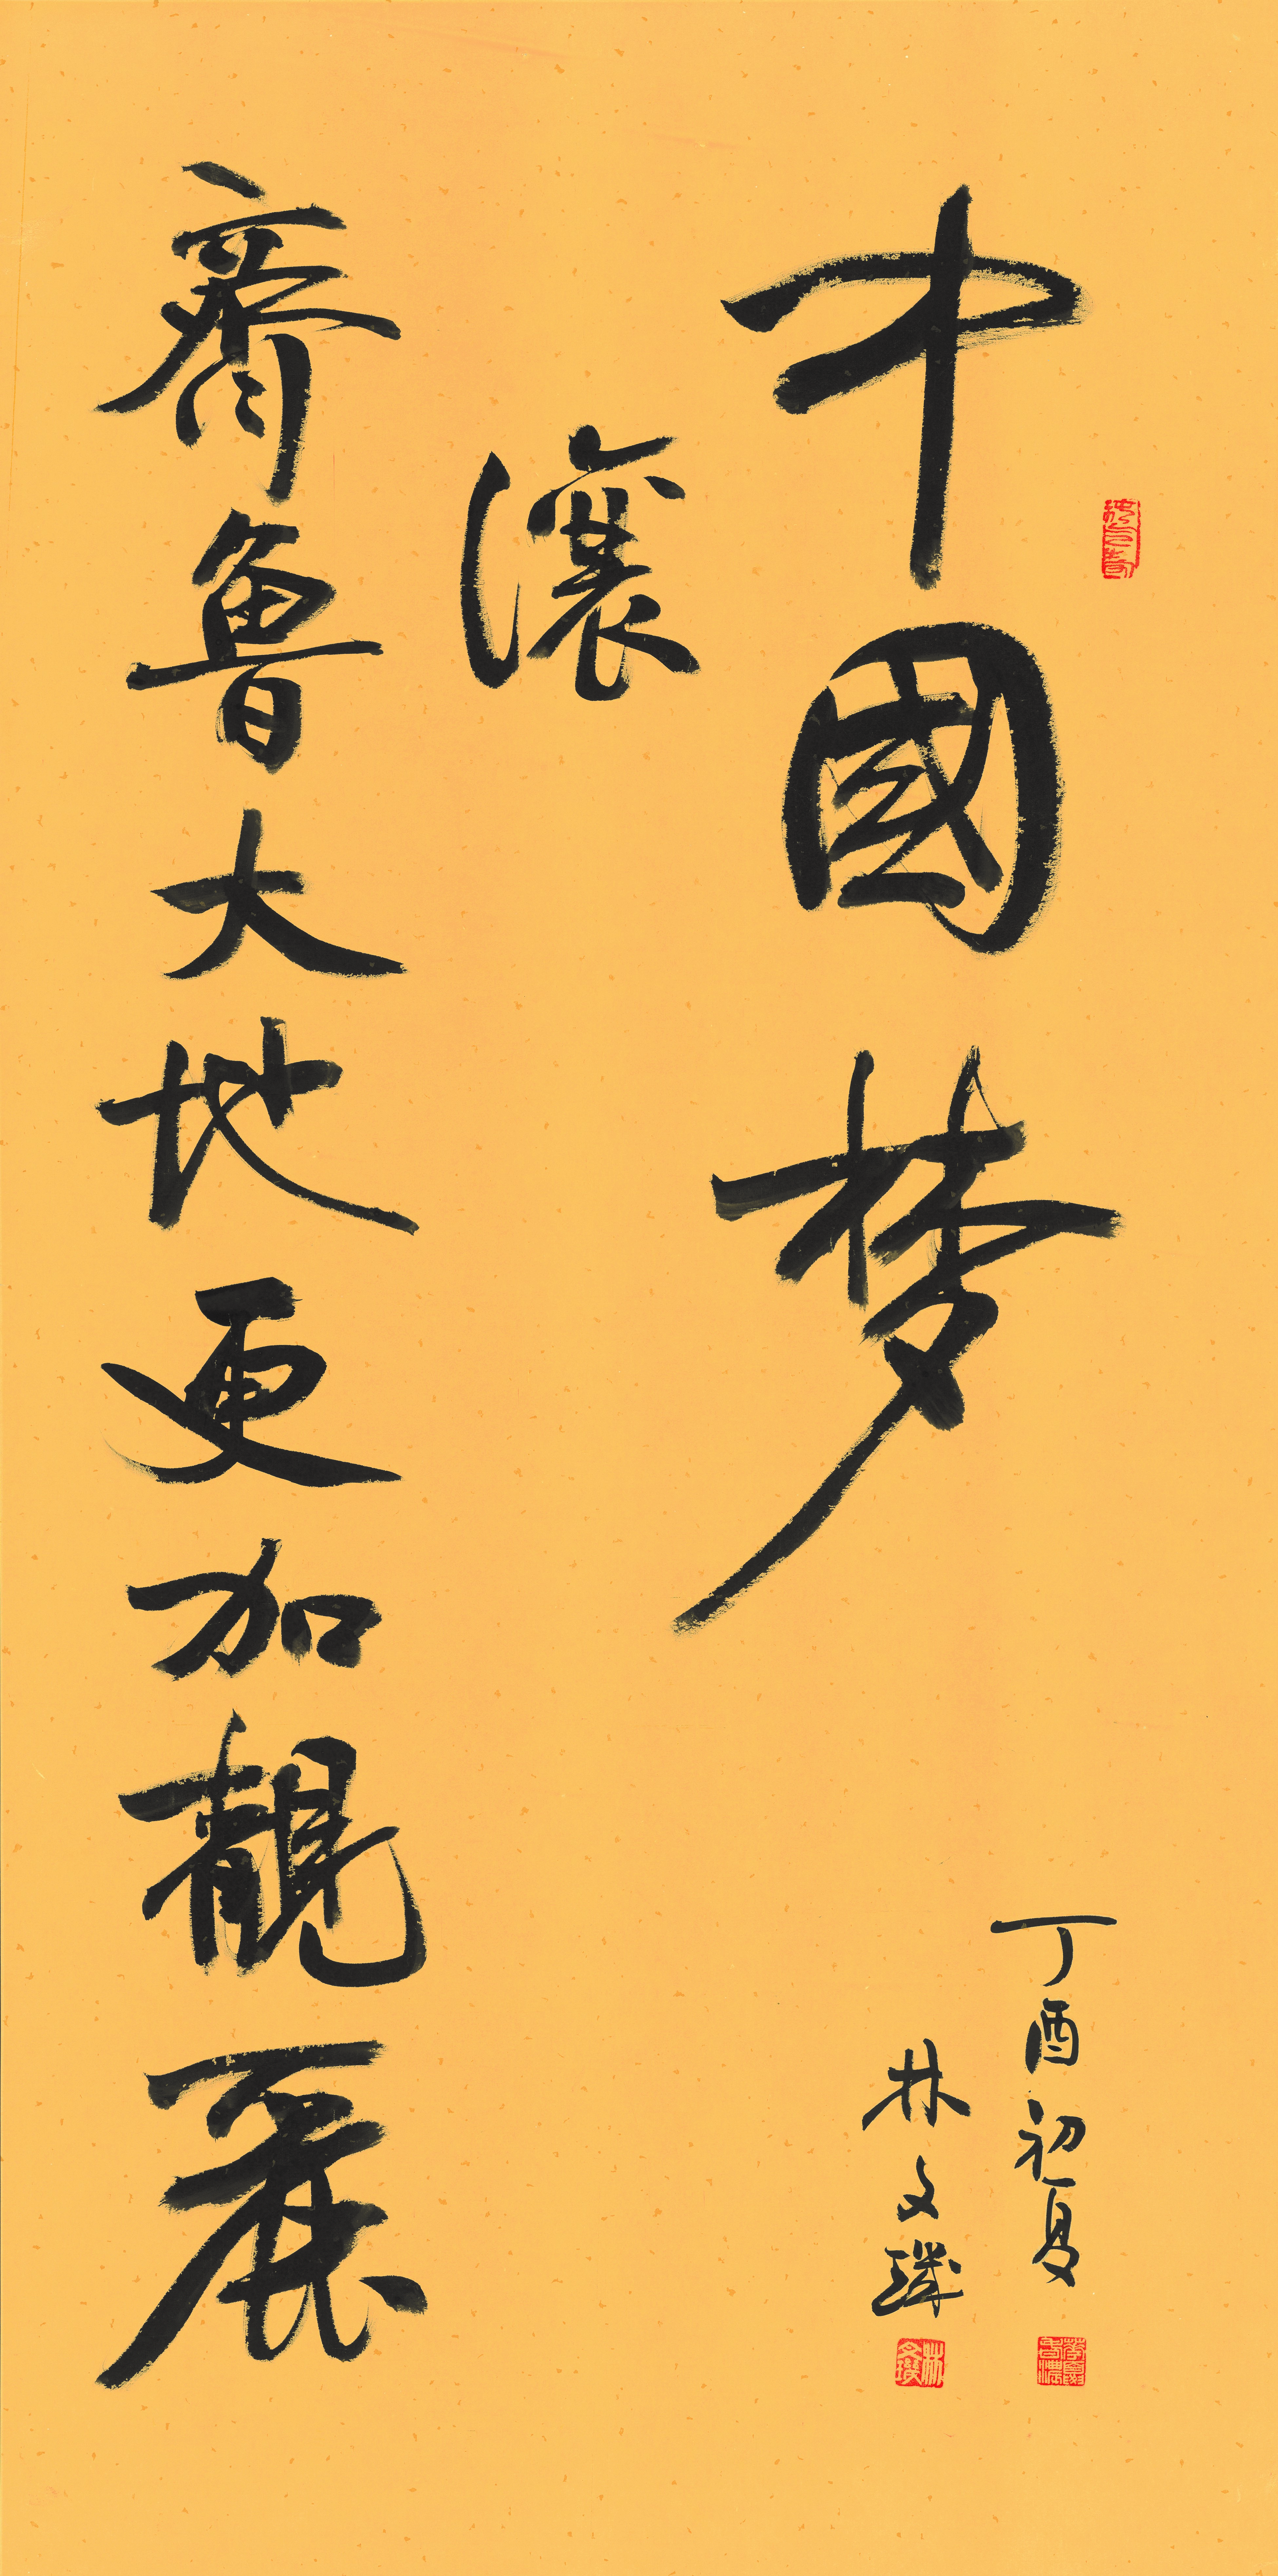 中國梦
讓
齊魯大地更加靚麗
丁酉初夏
林文